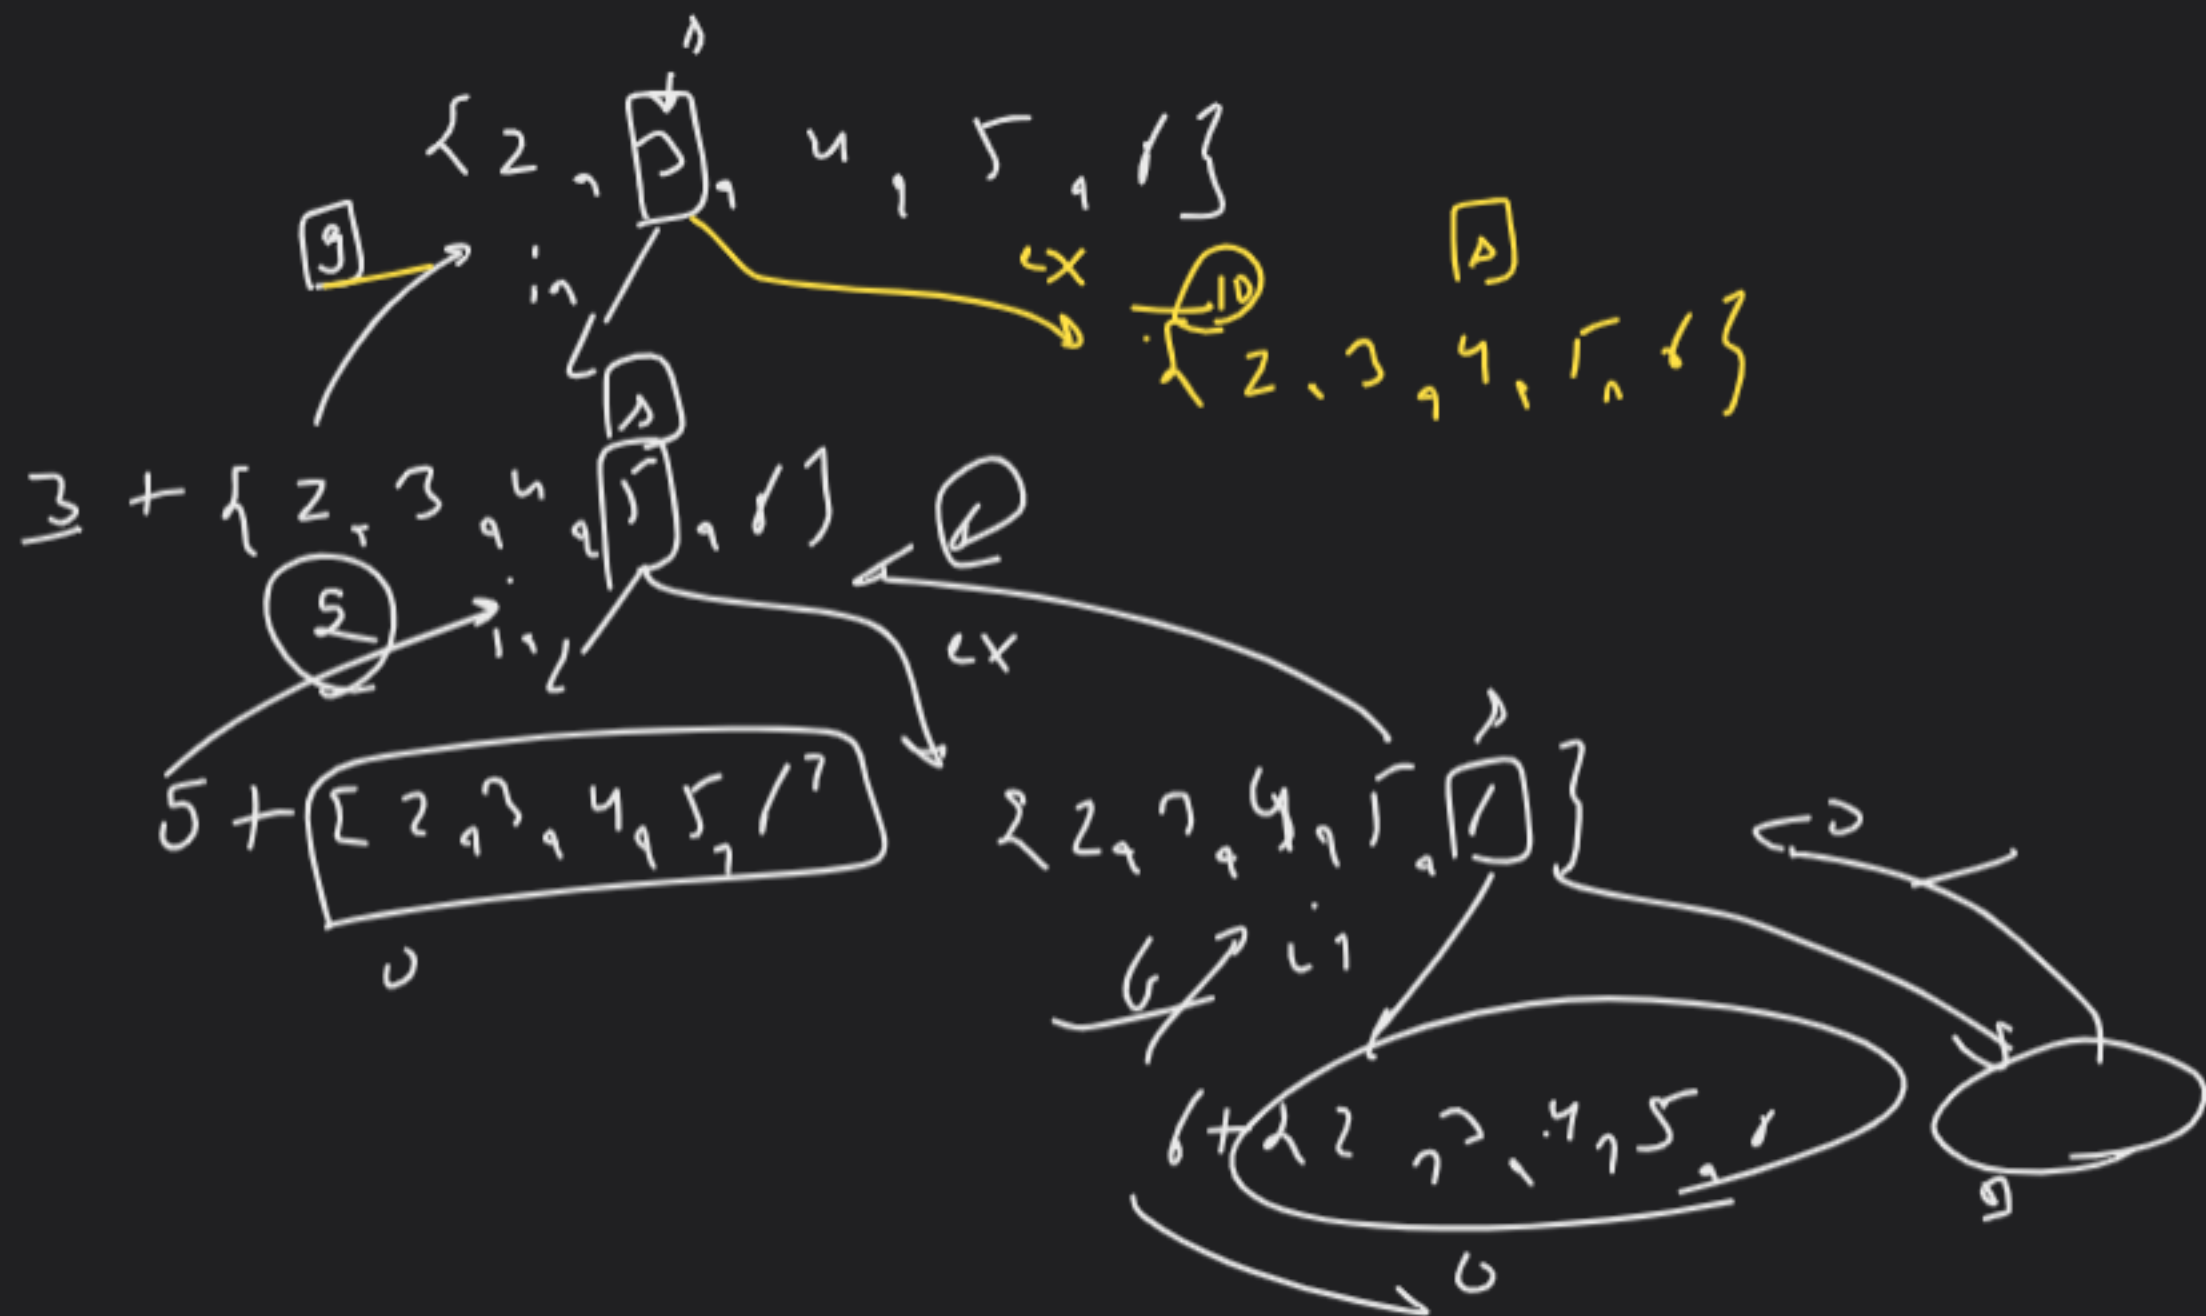 {2, 3, 4, 5, 6}
9
in
ex
10
{2, 3, 4, 5, 6}
3 + {2, 3, 4, 5, 6}
5
in
ex
5 + {2, 3, 4, 5, 6}
{2, 3, 4, 5, 6}
0
6
in
6 + {2, 3, 4, 5, 6
0